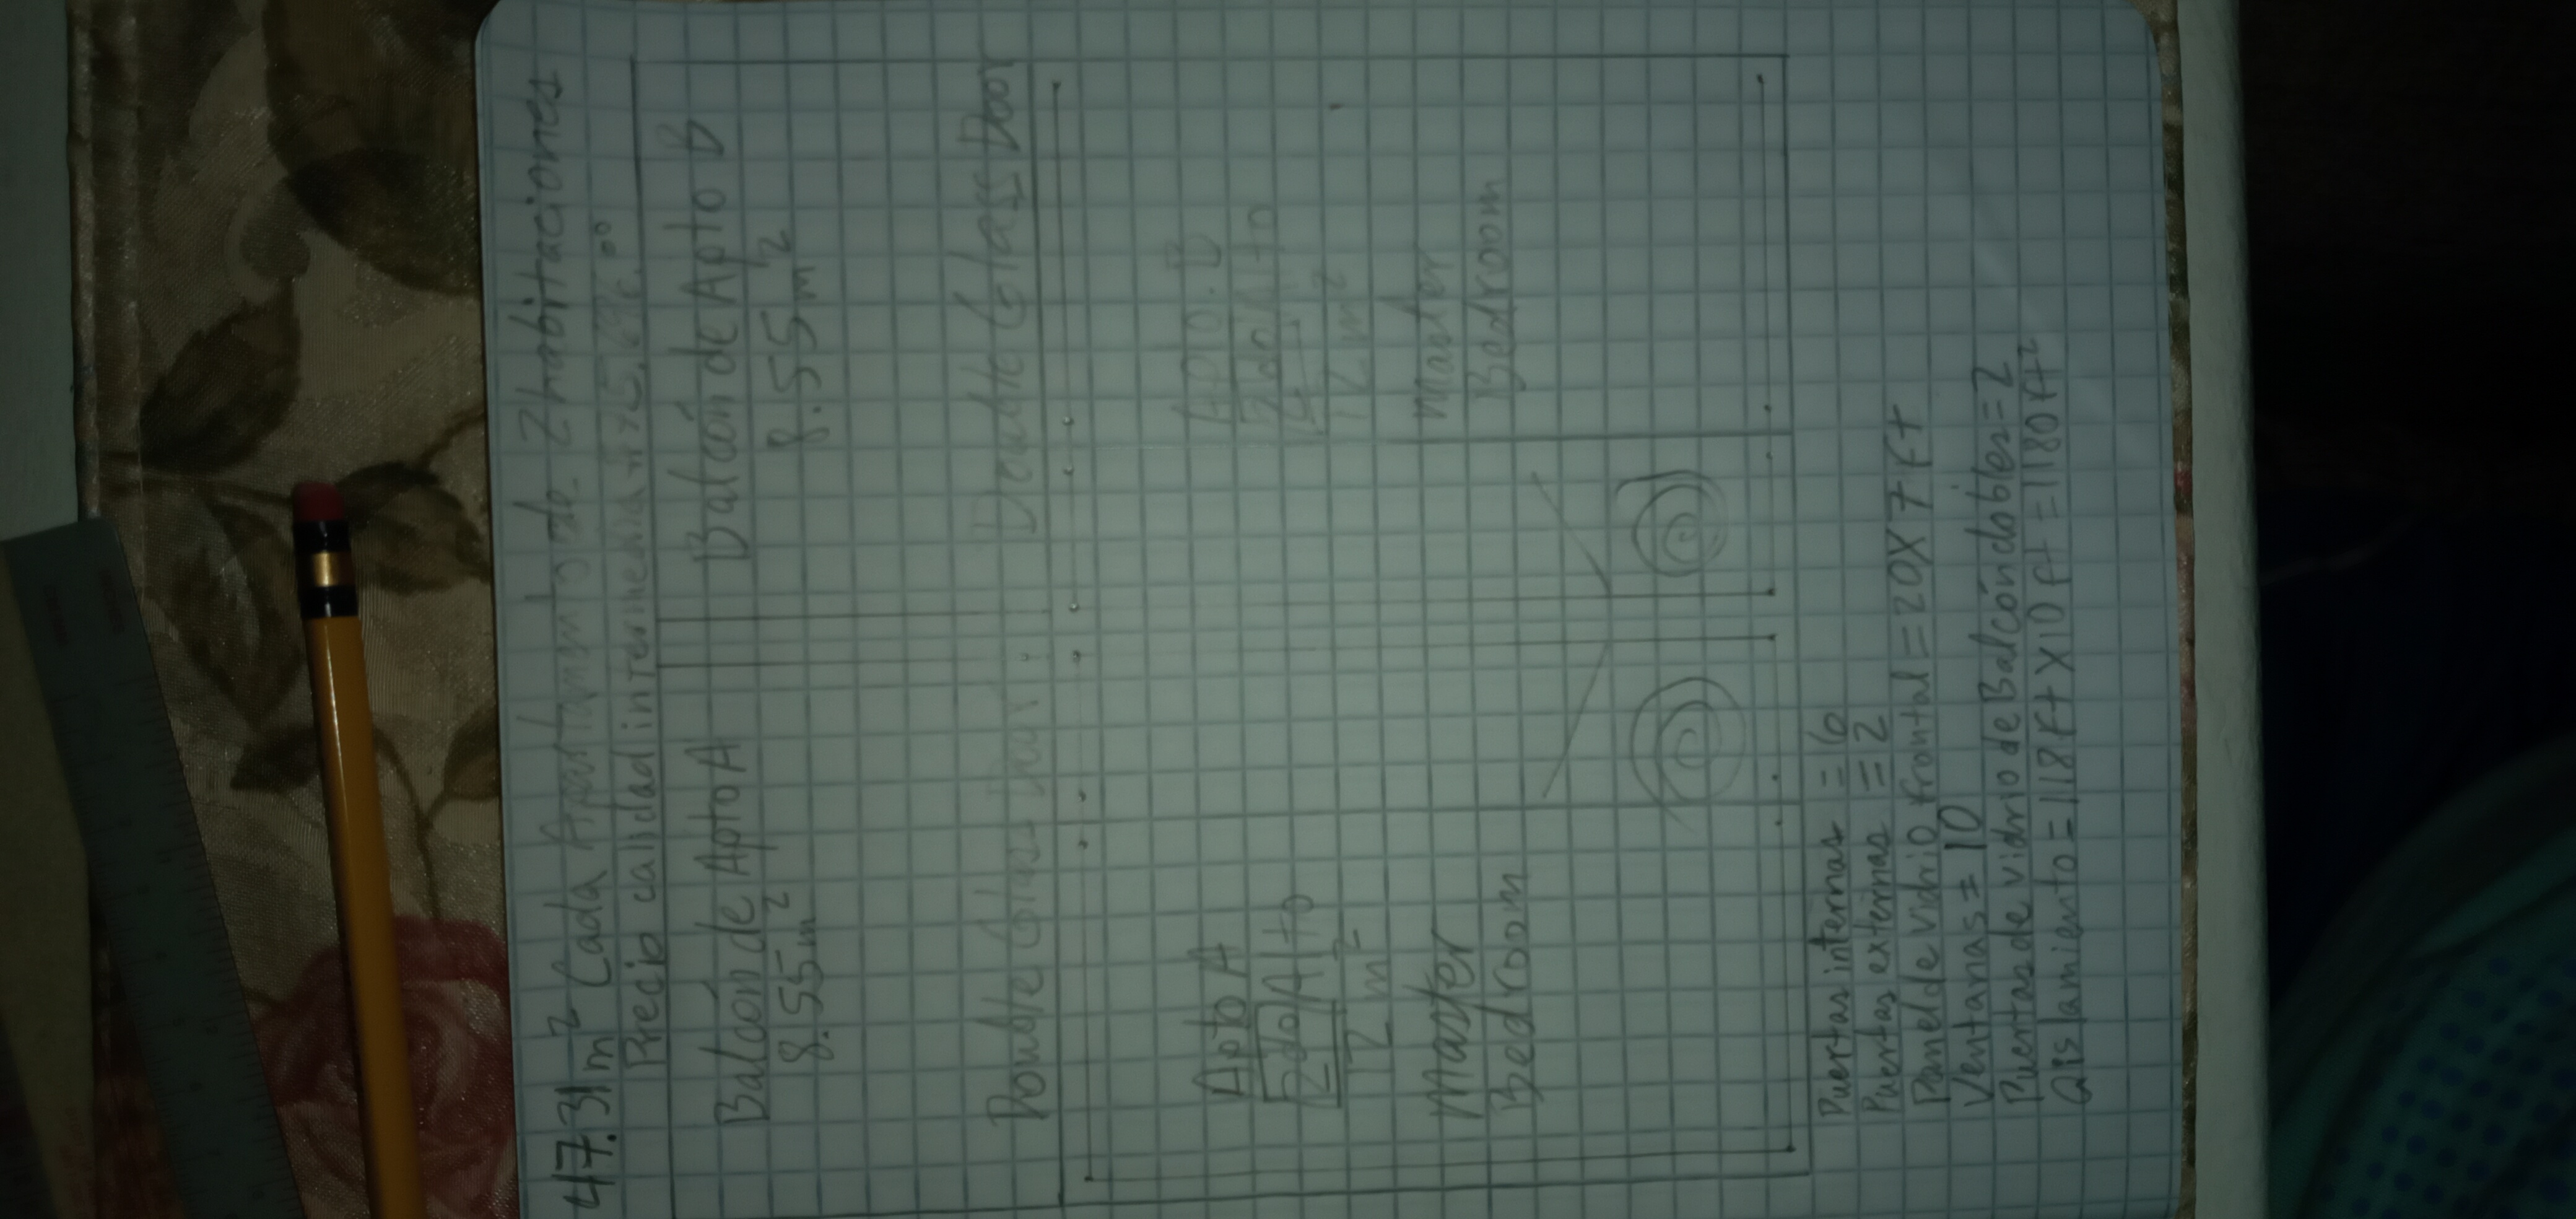 47.31 m² Cada Apartamento de 2 habitaciones
Precio calidad intermedia
Balcón de Apto A
8.55 m²
Balcón de Apto B
8.55 m²
Double Glass Door
Double Glass Door
Apto A
2do Alto
12 m²
Master
Bedroom
Apto. B
2do Alto
12 m²
Master
Bedroom
Puertas internas = 6
Puertas externas = 2
Panel de vidrio frontal = 20 X 7 ft
Ventanas = 10
Puertas de vidrio de Balcón dobles = 2
aislamiento = 118 ft X 10 ft = 1180 ft²